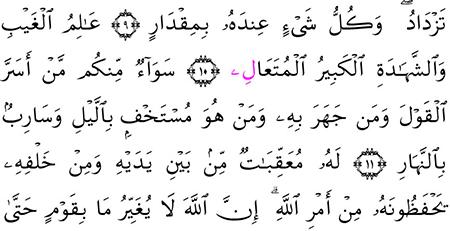 تَزْدَادُۖ وَكُلُّ شَىْءٍ عِندَهُۥ بِمِقْدَارٍ ۝٩ عَـٰلِمُ ٱلْغَيْبِ
وَٱلشَّهَـٰدَةِ ٱلْكَبِيرُ ٱلْمُتَعَالِۦ ۝١٠ سَوَآءٌ مِّنكُم مَّنْ أَسَرَّ
ٱلْقَوْلَ وَمَن جَهَرَ بِهِۦ وَمَنْ هُوَ مُسْتَخْفٍۭ بِٱلَّيْلِ وَسَارِبٌۢ
بِٱلنَّهَارِ ۝١١ لَهُۥ مُعَقِّبَـٰتٌ مِّنۢ بَيْنِ يَدَيْهِ وَمِنْ خَلْفِهِۦ
يَحْفَظُونَهُۥ مِنْ أَمْرِ ٱللَّهِۗ إِنَّ ٱللَّهَ لَا يُغَيِّرُ مَا بِقَوْمٍ حَتَّىٰ